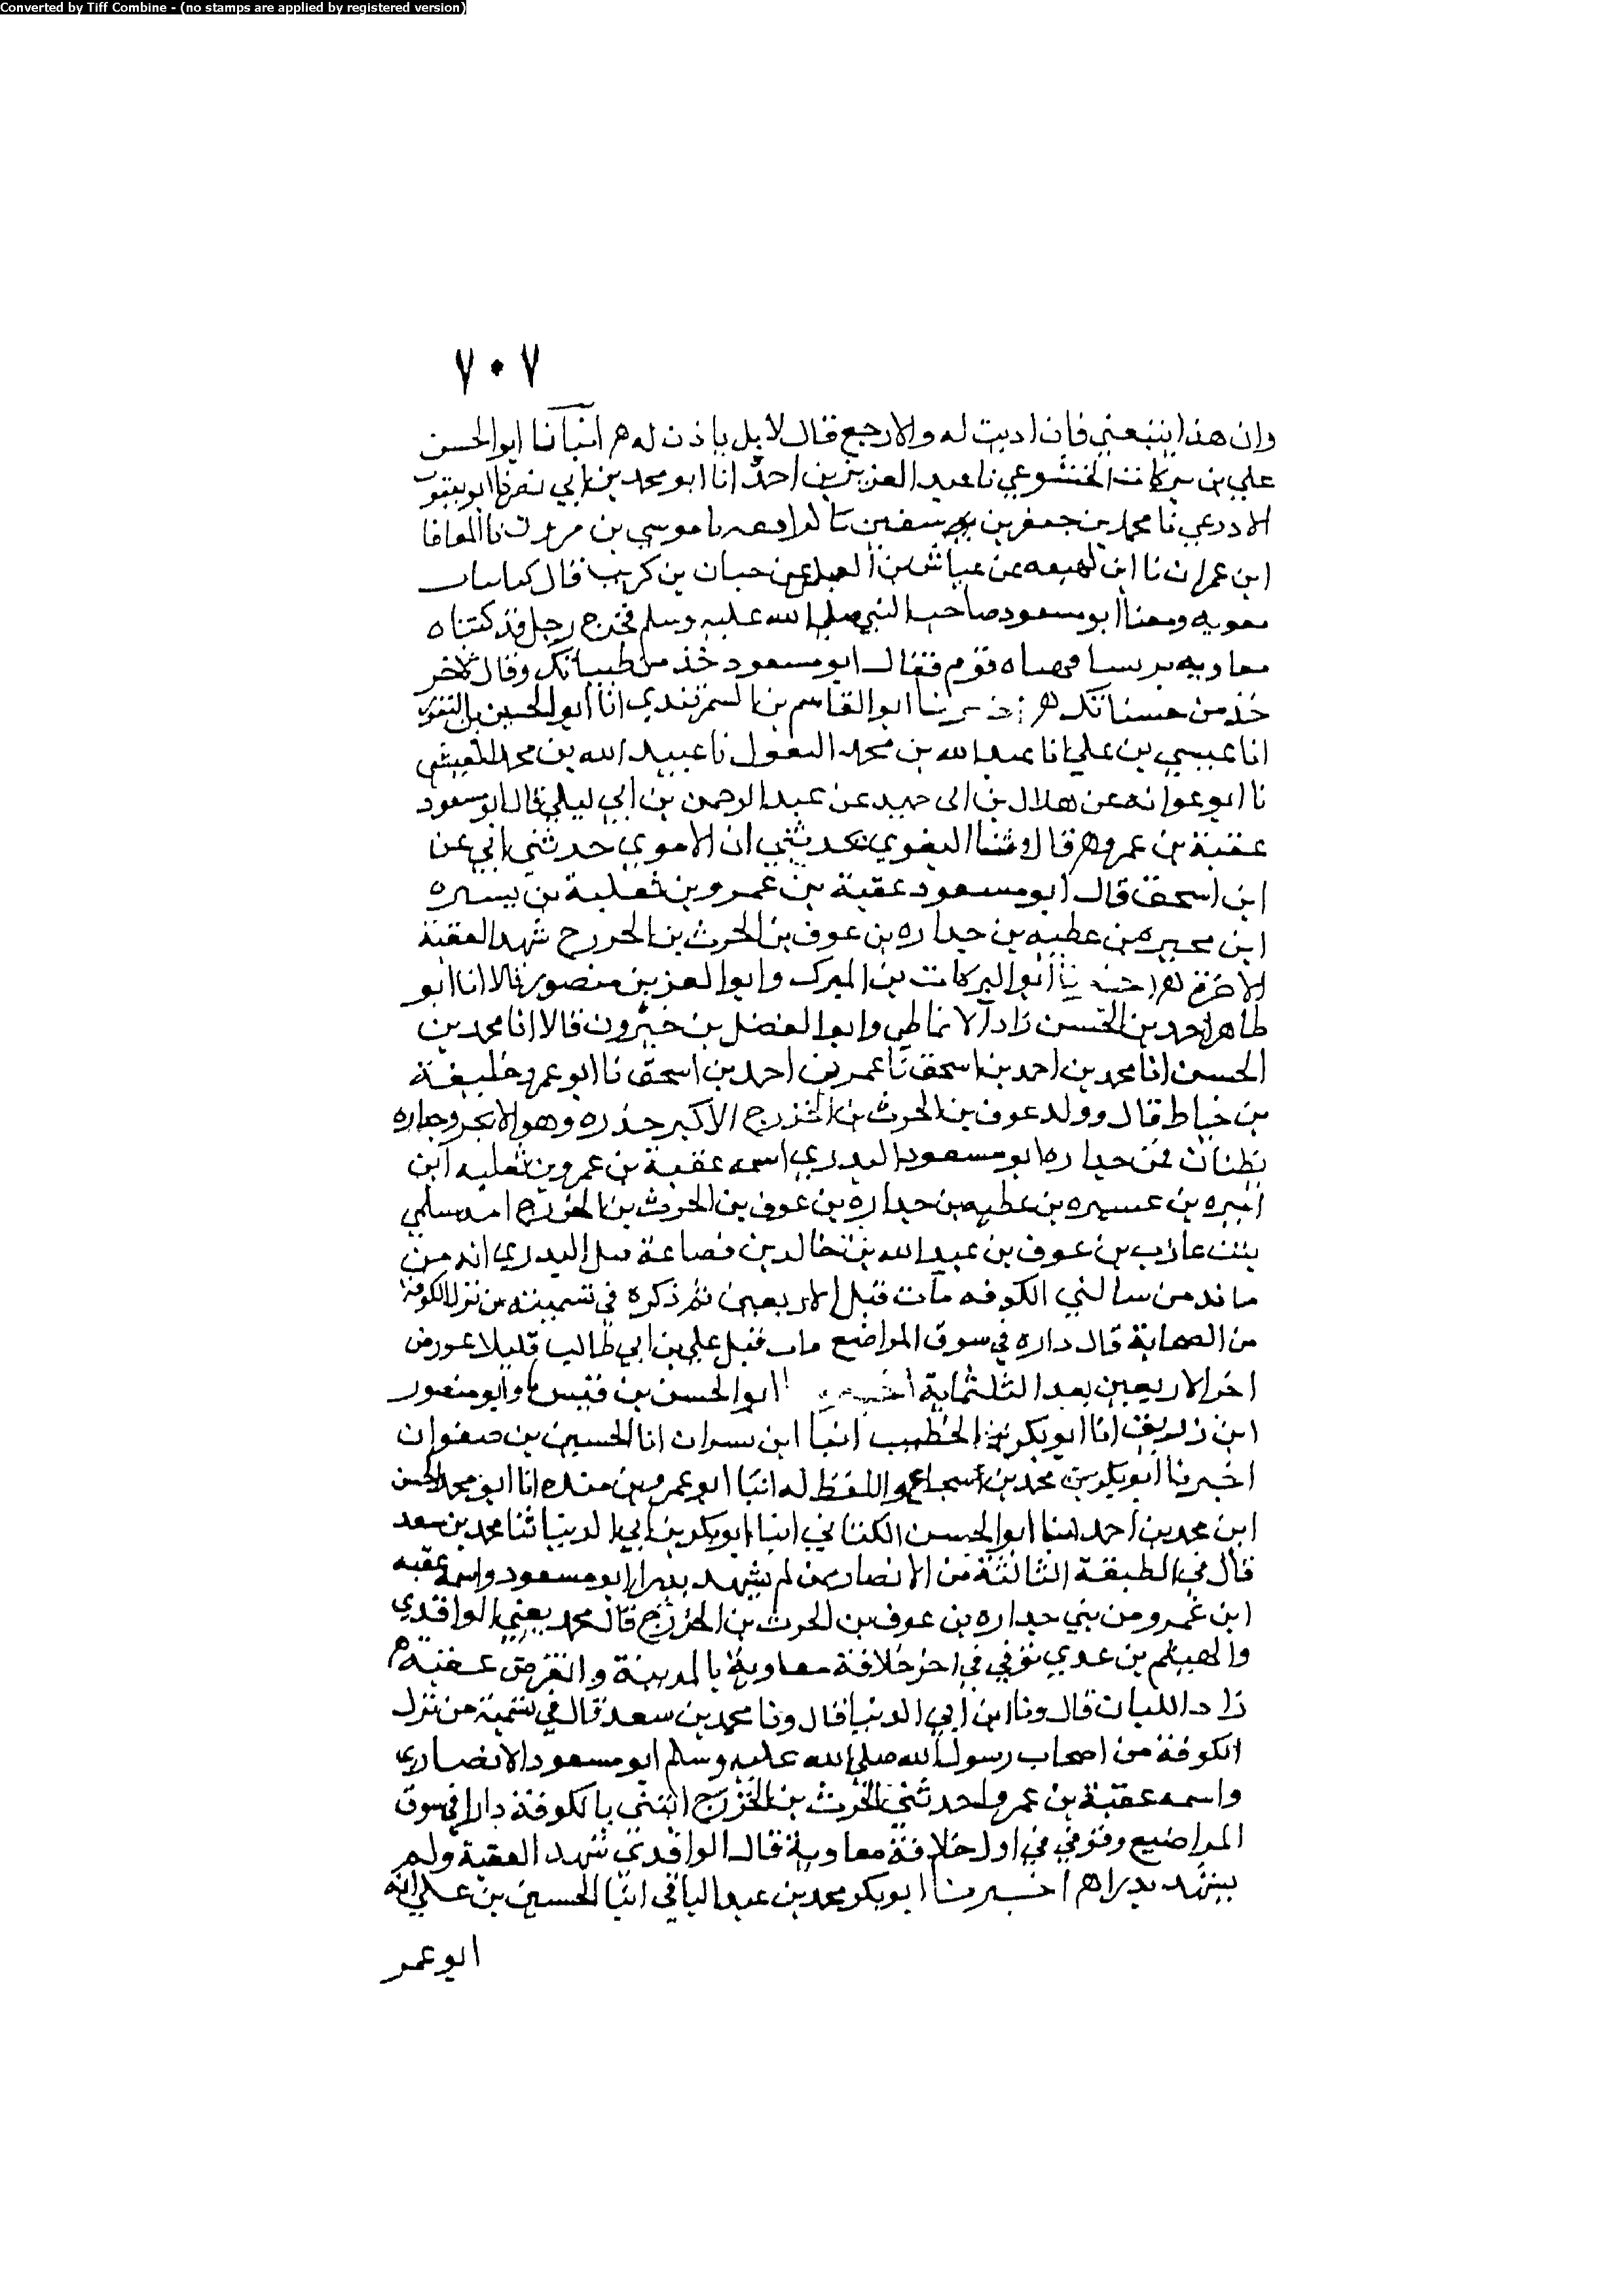 Converted by Tiff Combine - (no stamps are applied by registered version)
٧٠٧
وان هذا يتبعني فان اذنت له والا رجع قال لا بل ياذن له ه انبانا ابو الحسن
علي بن بركات الخشوعي نا عبد العزيز بن احمد انا ابو محمد بن ابي نصر نا ابو يعقوب
الاذرعي نا محمد بن جعفر بن سفين نا موسي بن مروان نا المعافا
ابن عمران نا ابن لهيعه عن عياش بن عن حبان بن كريب قال كنا بباب
معويه ومعنا ابو مسعود صاحب النبي صلي الله عليه وسلم فخرج رجل قد كساه
معاويه برنسا فهناه قوم فقال ابو مسعود خذ من طيباتك وقال لاخر
خذ من حسناتك ه اخبرنا ابو القاسم بن السمرقندي انا ابو الحسين بن النقور
انا عيسي بن علي انا عبد الله بن محمد البغوي نا عبيد الله بن محمد العيشي
نا ابو عوانه عن هلال بن ابي حميد عن عبد الرحمن بن ابي ليلي قال ابو مسعود
عقبة بن عمرو ه قال وثنا البغوي حدثني ابن الاموي حدثني ابي عن
ابن اسحق قال ابو مسعود عقبة بن عمرو بن ثعلبة بن يسيره
ابن عطيه بن جداره بن عوف بن الحرث بن الخزرج شهد العقبة
الاخرة ه اخبرنا ابو البركات بن المبرك وابو العز بن منصور قالا انا ابو
طاهر احمد بن الحسن زاد الانماطي وابو الفضل بن خيرون قالا انا محمد بن
الحسن انا محمد بن احمد بن اسحق نا عمر بن احمد بن اسحق نا ابو عمرو خليفة
بن خياط قال وولد عوف بن الحرث بن الخزرج الاكبر خدره وهو الابجر وجداره
بطنان فمن جداره ابو مسعود البدري اسمه عقبة بن عمرو بن ثعلبه ابن
اسيره بن عسيره بن عطيه بن جداره بن عوف بن الحرث بن الخزرج امه سلمي
بنت عازب بن عوف بن عبد الله بن خالد بن قضاعة
الكوفه مات قبل الاربعين ثم ذكره في تسميته من نزل الكوفة
من الصحابة قال داره في سوق المراضع مات قبل علي بن ابي طالب قليلا
اخر الاربعين بعد الثلثماية ابو الحسن بن قبيس وابو منصور
ابن زريق انا ابو بكر الخطيب انبا ابن بسران انا الحسين بن صفوان
اخبرنا ابو بكر بن محمد بن شجاع واللفظ له انبا ابو عمرو بن منده انا ابو محمد الحسن
ابن محمد بن احمد انبا ابو الحسن انبا ابو بكر بن ابي الدنيا ثنا محمد بن سعد
قال في الطبقة الثالثة من الانصار ممن لم يشهد بدرا ابو مسعود واسمه عقبه
ابن عمرو من بني جداره بن عوف بن الحرث بن الخزرج قال محمد يعني الواقدي
والهيثم بن عدي توفي في اخر خلافة معاوية بالمدينة وانقرض عقبه ه
زاد اللبان قال ونا ابن ابي الدنيا قال ونا محمد بن سعد قال في تسمية من نزل
الكوفة من اصحاب رسول الله صلي الله عليه وسلم ابو مسعود الانصاري
واسمه عقبة بن عمرو احد بني الحرث بن الخزرج ابتني بالكوفة دارا في سوق
المراضيع وتوفي في اول خلافة معاوية قال الواقدي شهد العقبة ولم
يشهد بدرا ه اخبرنا ابو بكر محمد بن عبد الباقي انبا الحسين بن علي انه
ابو عمر